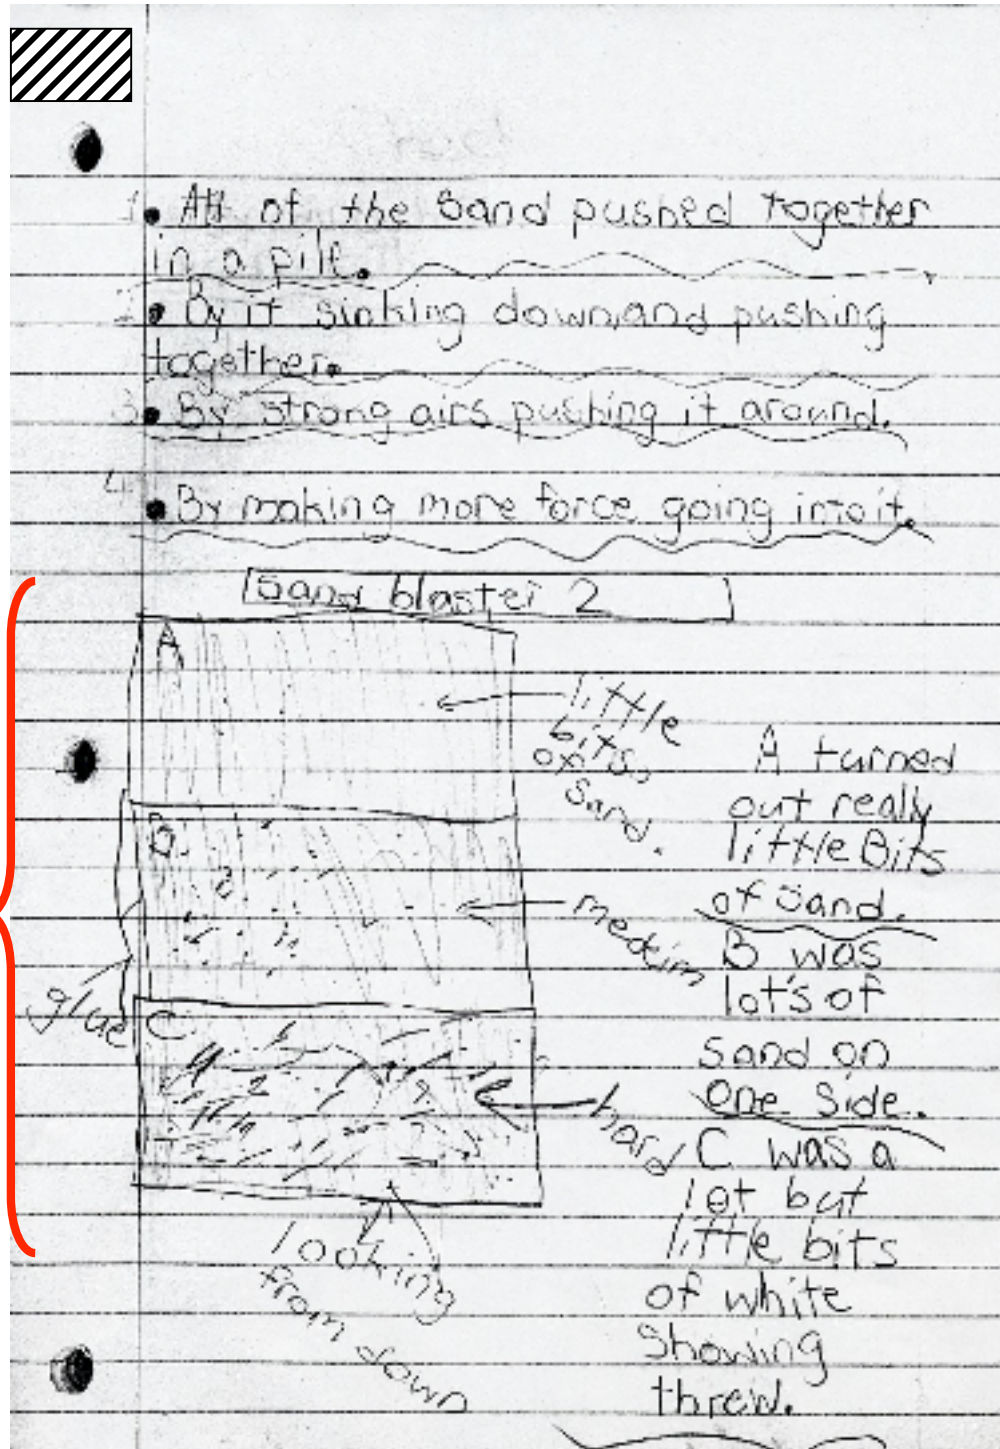 1. All of the Sand pushed together
in a pile.
2. By it sinking down,and pushing
together.
3. By strong airs pushing it around.
4. By making more force going into it.
Sand blaster 2
A
little
bits
of
Sand.
B
medeim
glue
C
hard
looking
from down
A turned
out really
little Bits
of Sand.
B was
lot's of
sand on
one Side.
C was a
lot but
little bits
of white
Showing
threw.